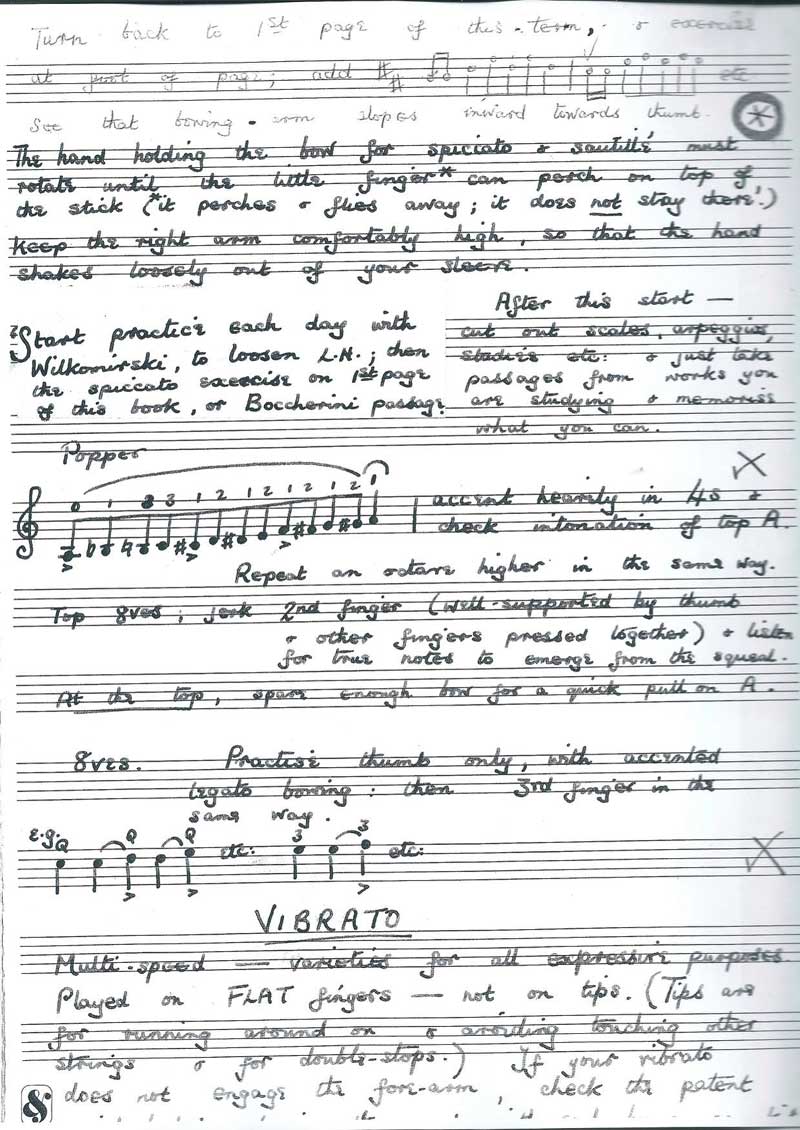 Turn back to 1st page of this term, & exercise
at foot of page; add etc
See that bowing-arm slopes inward towards thumb.
The hand holding the bow for spiccato & sautillé must
rotate until the little finger* can perch on top of
the stick (*it perches & flies away; it does not stay there!)
Keep the right arm comfortably high, so that the hand
shakes loosely out of your sleeve.
Start practice each day with
Wilkomirski, to loosen L.H.; then
the spiccato exercise on 1st page
of this book, or Boccherini passage.
After this start —
cut out scales, arpeggios,
studies etc: & just take
passages from works you
are studying & memorise
what you can.
Popper
0 1 2 3 1 2 1 2 1 2 1 2 1
accent heavily in 4s &
check intonation of top A.
Repeat an octave higher in the same way.
Top 8ves; jerk 2nd finger (well-supported by thumb
& other fingers pressed together) & listen
for true notes to emerge from the squeal.
At the top, spare enough bow for a quick pull on A.
8ves. Practise thumb only, with accented
legato bowing: then 3rd finger in the
same way.
E.g. etc: 3 3 etc:
VIBRATO
Multi-speed — varieties for all expressive purposes.
Played on FLAT fingers — not on tips. (Tips are
for running around on & avoiding touching other
strings & for double-stops.) If your vibrato
does not engage the fore-arm, check the patent